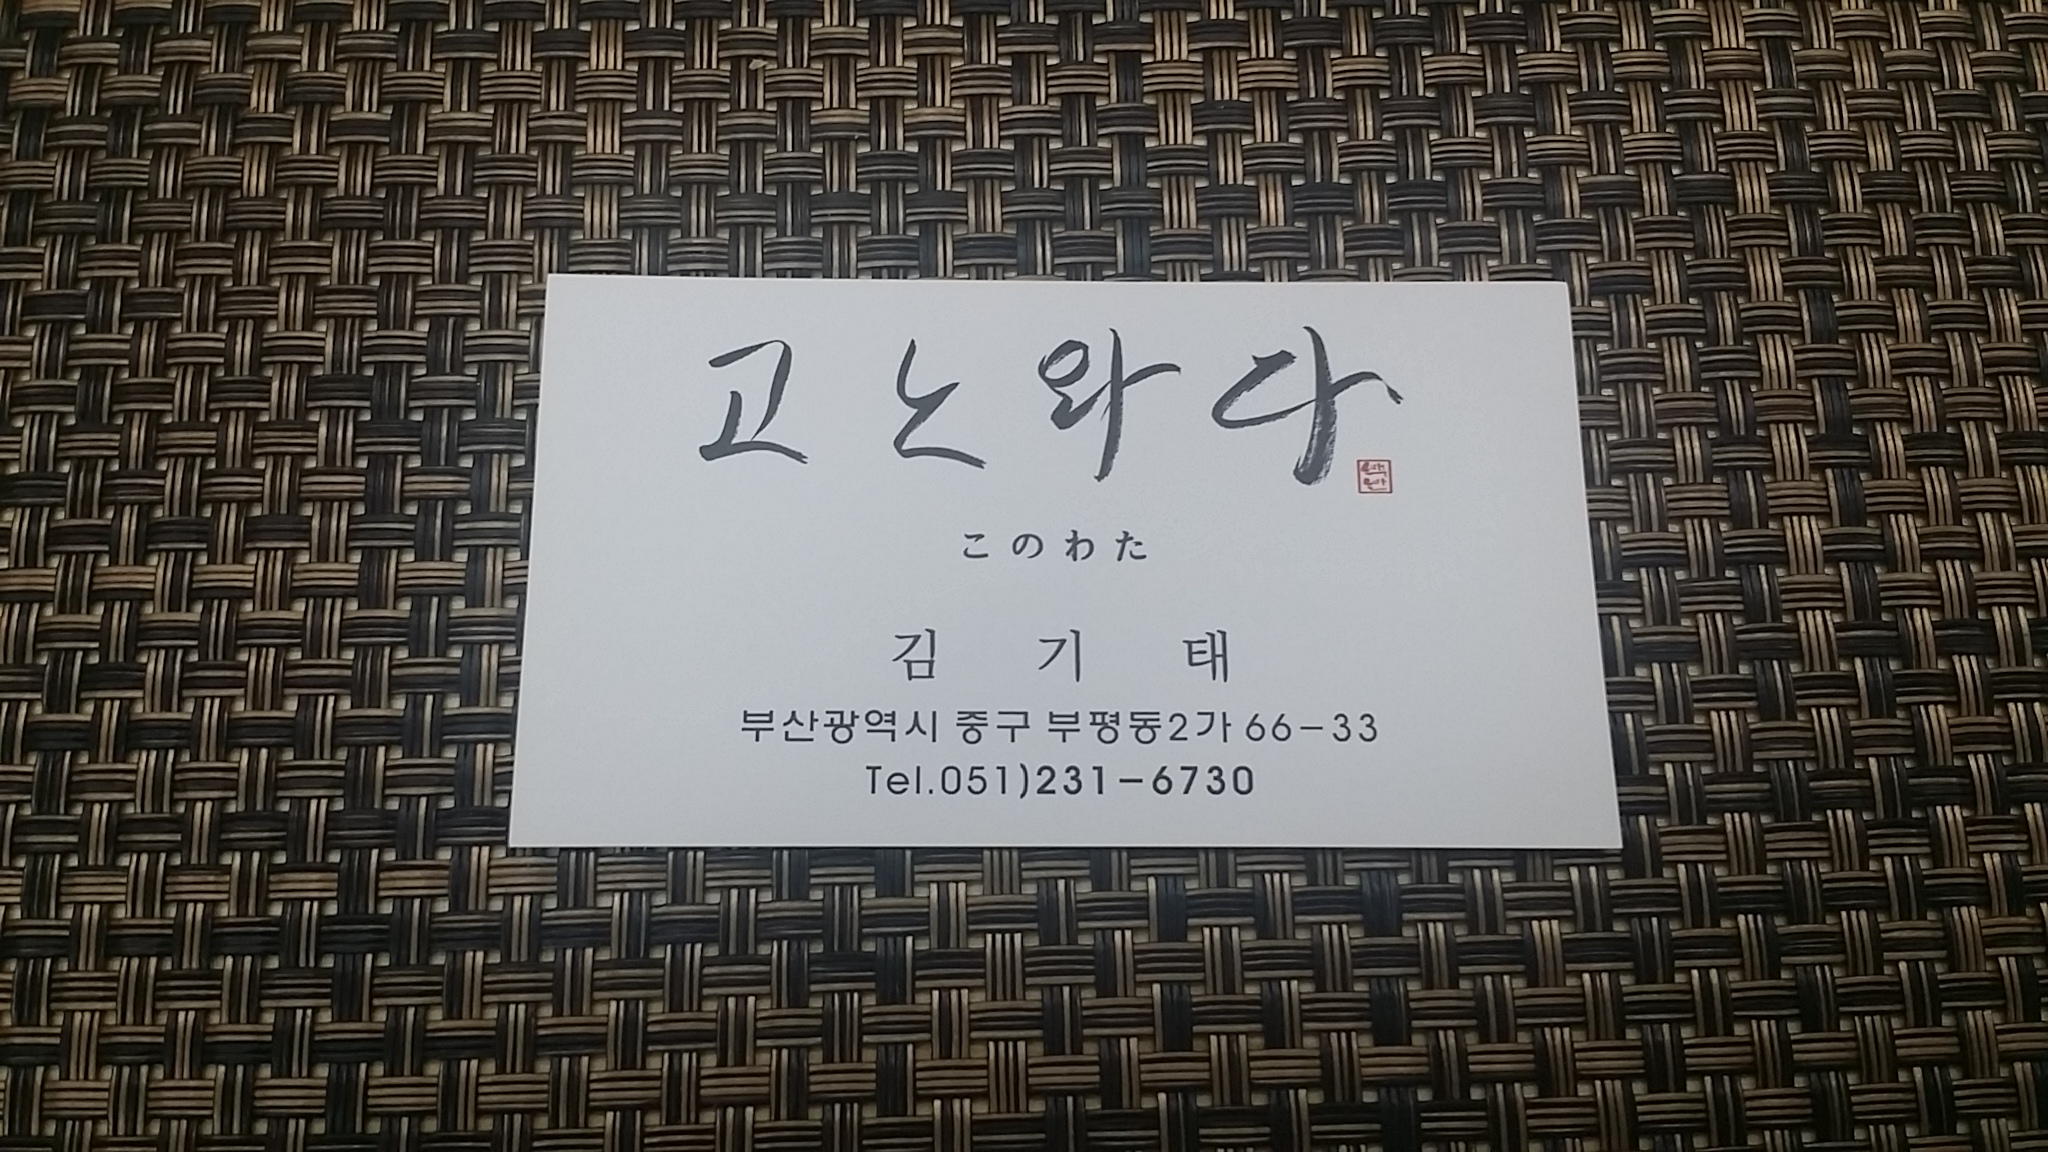 고노와다
このわた
김 기 태
부산광역시 중구 부평동2가 66-33
Tel.051)231-6730